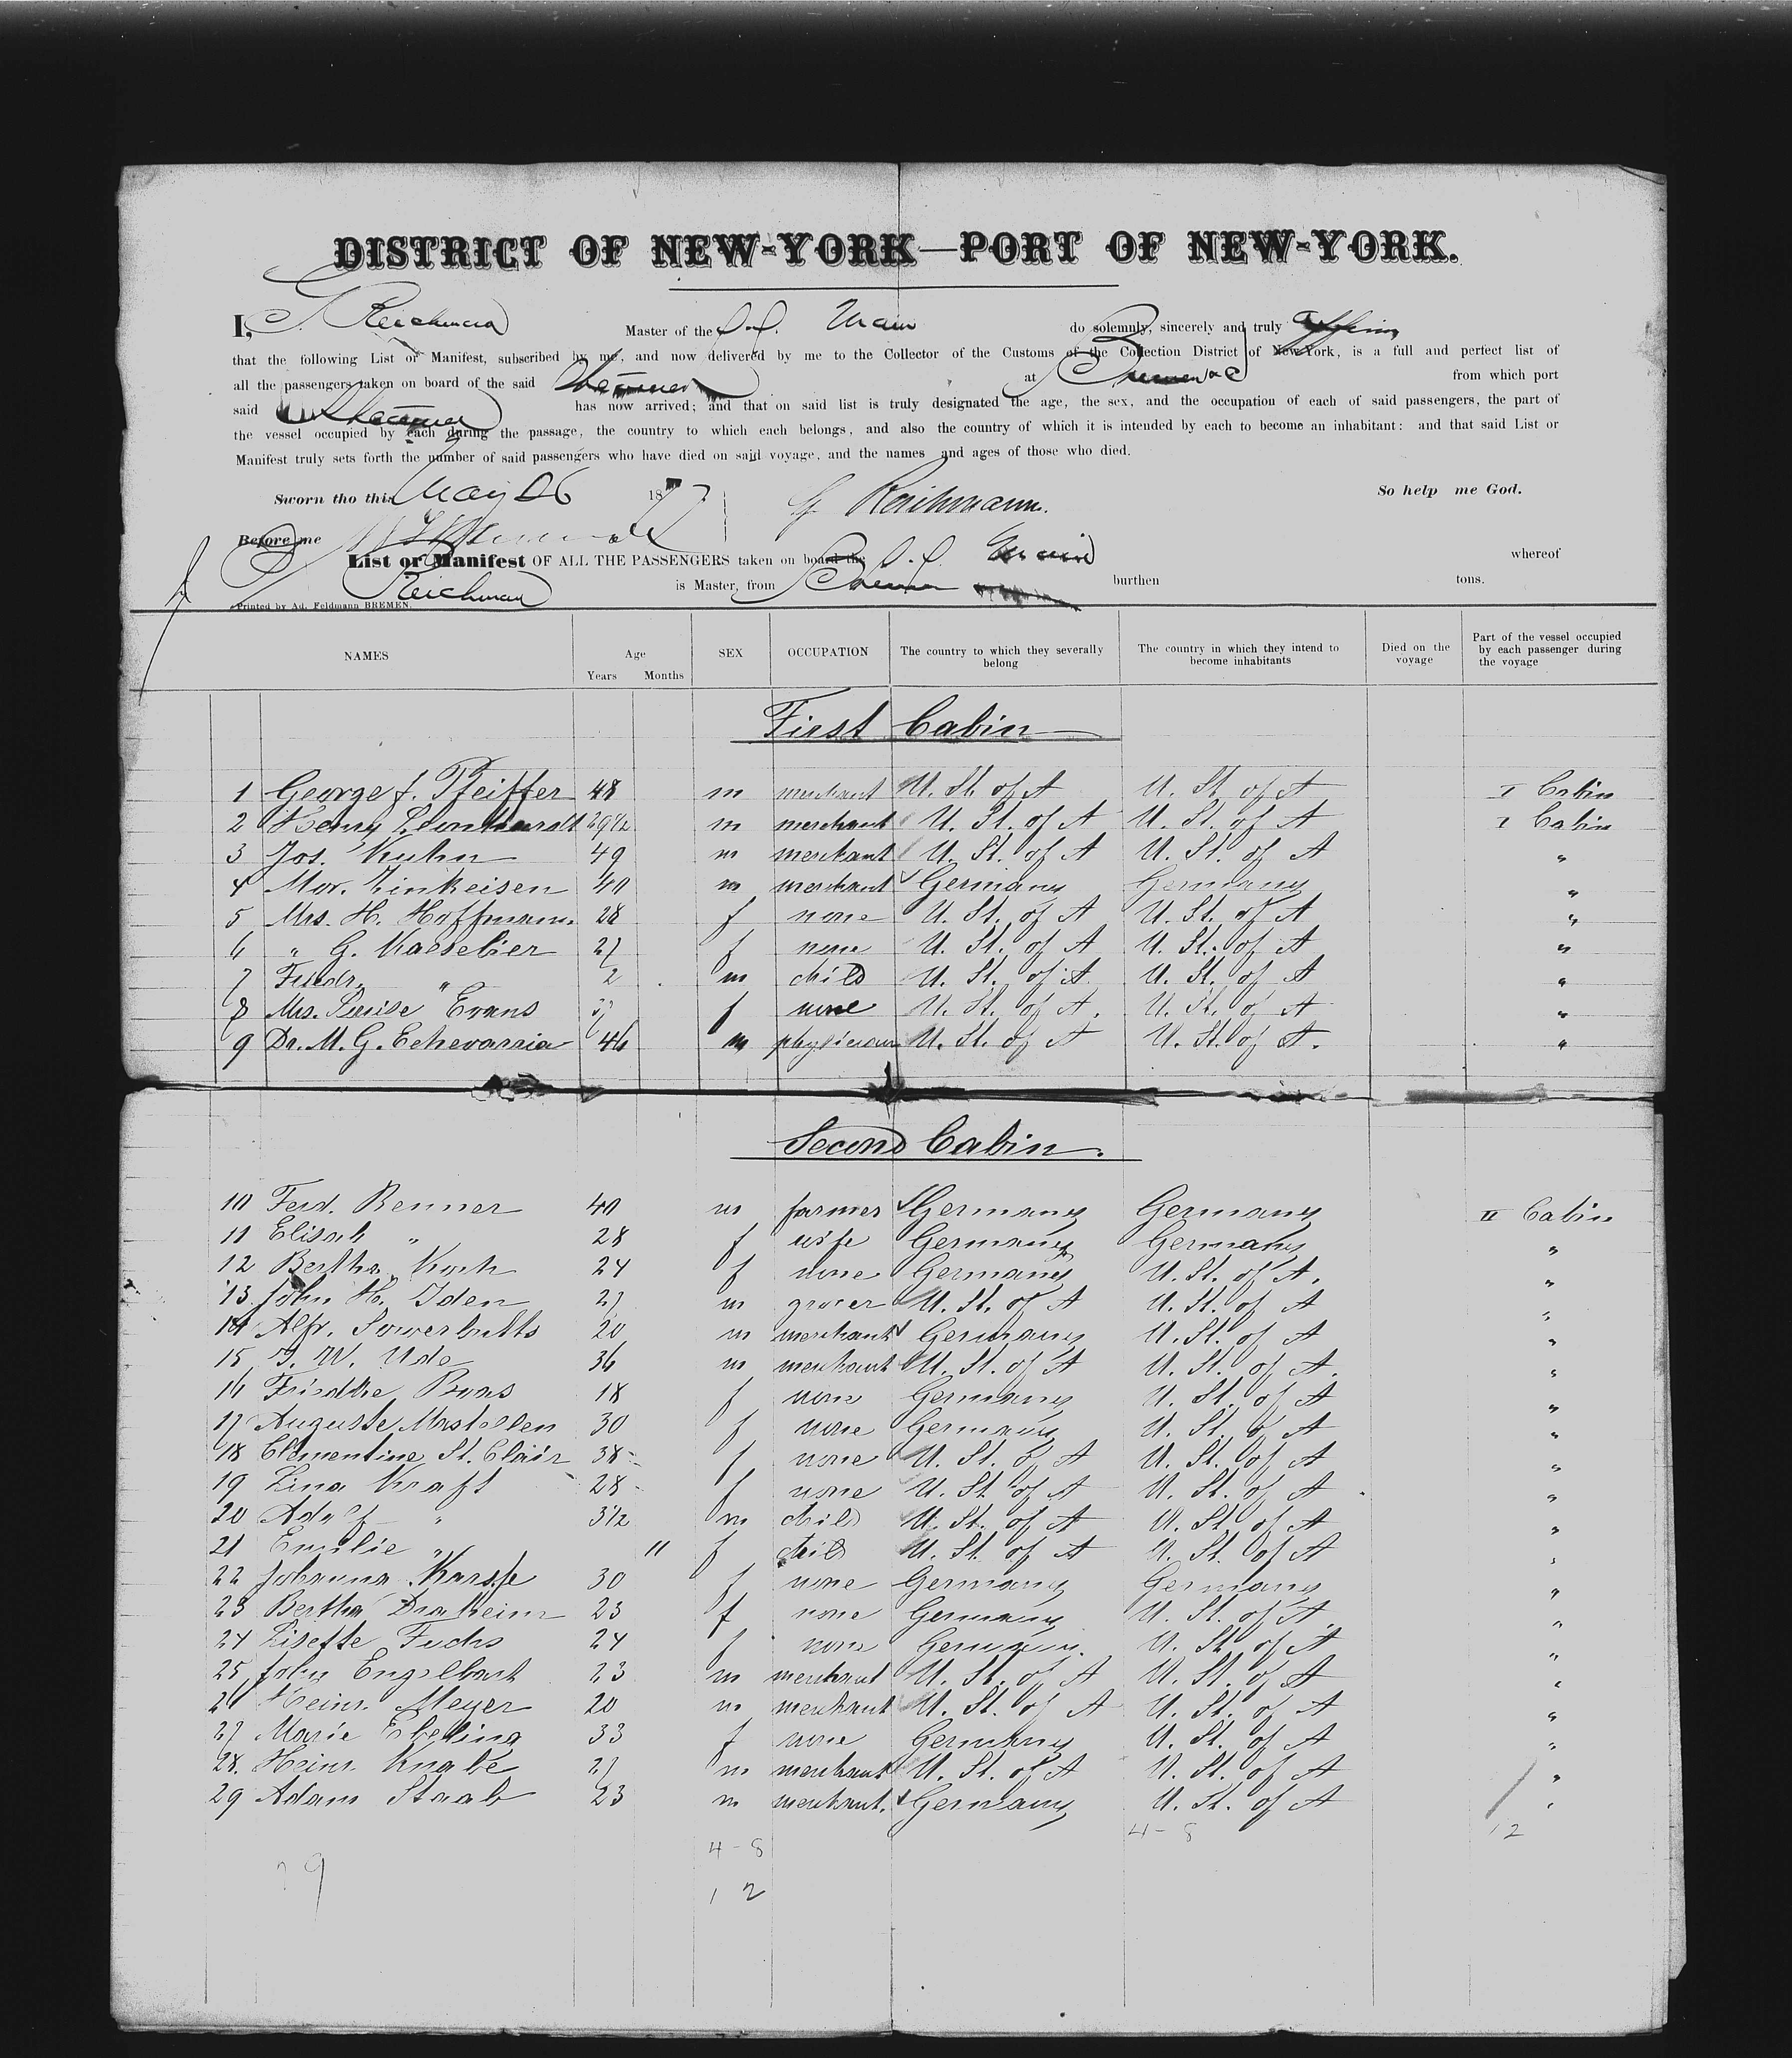 DISTRICT OF NEW-YORK—PORT OF NEW-YORK.
I, Master of the S.S. Main do solemnly, sincerely and truly affirm
that the following List or Manifest, subscribed by me, and now delivered by me to the Collector of the Customs of the Collection District of New-York, is a full and perfect list of
all the passengers taken on board of the said Steamer at Bremen from which port
said Steamer has now arrived; and that on said list is truly designated the age, the sex, and the occupation of each of said passengers, the part of
the vessel occupied by each during the passage, the country to which each belongs, and also the country of which it is intended by each to become an inhabitant: and that said List or
Manifest truly sets forth the number of said passengers who have died on said voyage, and the names and ages of those who died.
Sworn tho this May 26 1877 G. Reichmann. So help me God.
Before me
List or Manifest OF ALL THE PASSENGERS taken on board the S.S. Main whereof
Reichman is Master, from Bremen burthen tons.
Printed by Ad. Feldmann BREMEN.
NAMES Age Years Months SEX OCCUPATION The country to which they severally belong The country in which they intend to become inhabitants Died on the voyage Part of the vessel occupied by each passenger during the voyage
First Cabin
1 George f. Pfeiffer 48 m merchant U. St. of A U. St. of A I Cabin
2 Henry Leonhardt 29 1/2 m merchant U. St. of A U. St. of A I Cabin
3 Jos. Kuhn 49 m merchant U. St. of A U. St. of A "
4 Mor. Zinkeisen 40 m merchant Germany Germany "
5 Mrs. H. Hoffmann 28 f none U. St. of A U. St. of A "
6 " G. Kaesebier 27 f none U. St. of A U. St. of A "
7 Friedr. " 2 m child U. St. of A U. St. of A "
8 Mrs. Luise Evans 37 f none U. St. of A. U. St. of A "
9 Dr. M. G. Echevarria 46 m physician U. St. of A U. St. of A. "
Second Cabin.
10 Ferd. Renner 40 m farmer Germany Germany II Cabin
11 Elisab " 28 f wife Germany Germany "
12 Bertha Koch 24 f none Germany U. St. of A. "
13 John H. Iden 27 m grocer U. St. of A U. St. of A "
14 Alfr. Sowerbutts 20 m merchant Germany U. St. of A "
15 W. Ude 36 m merchant U. St. of A U. St. of A. "
16 Friedke Bruns 18 f none Germany U. St. of A "
17 Auguste 30 f none Germany U. St. of A "
18 Clementine St. Clair 38 f none U. St. of A U. St. of A "
19 Lina Kraft 28 f none U. St. of A U. St. of A "
20 " 3 1/2 m child U. St. of A U. St. of A "
21 Emilie " 11 f child U. St. of A U. St. of A "
22 Johanna 30 f none Germany Germany "
23 Bertha Draheim 23 f none Germany U. St. of A "
24 Lisette Fuchs 24 f none Germany. U. St. of A "
25 John Engelbart 23 m merchant U. St. of A U. St. of A "
26 Heinr. Meyer 20 m merchant U. St. of A U. St. of A "
27 Marie Ebeling 33 f none Germany U. St. of A "
28. Heinr. Knabe 27 m merchant U. St. of A U. St. of A "
29 Adam Staab 23 m merchant. Germany U. St. of A "
4-8 4-8 12
29 12